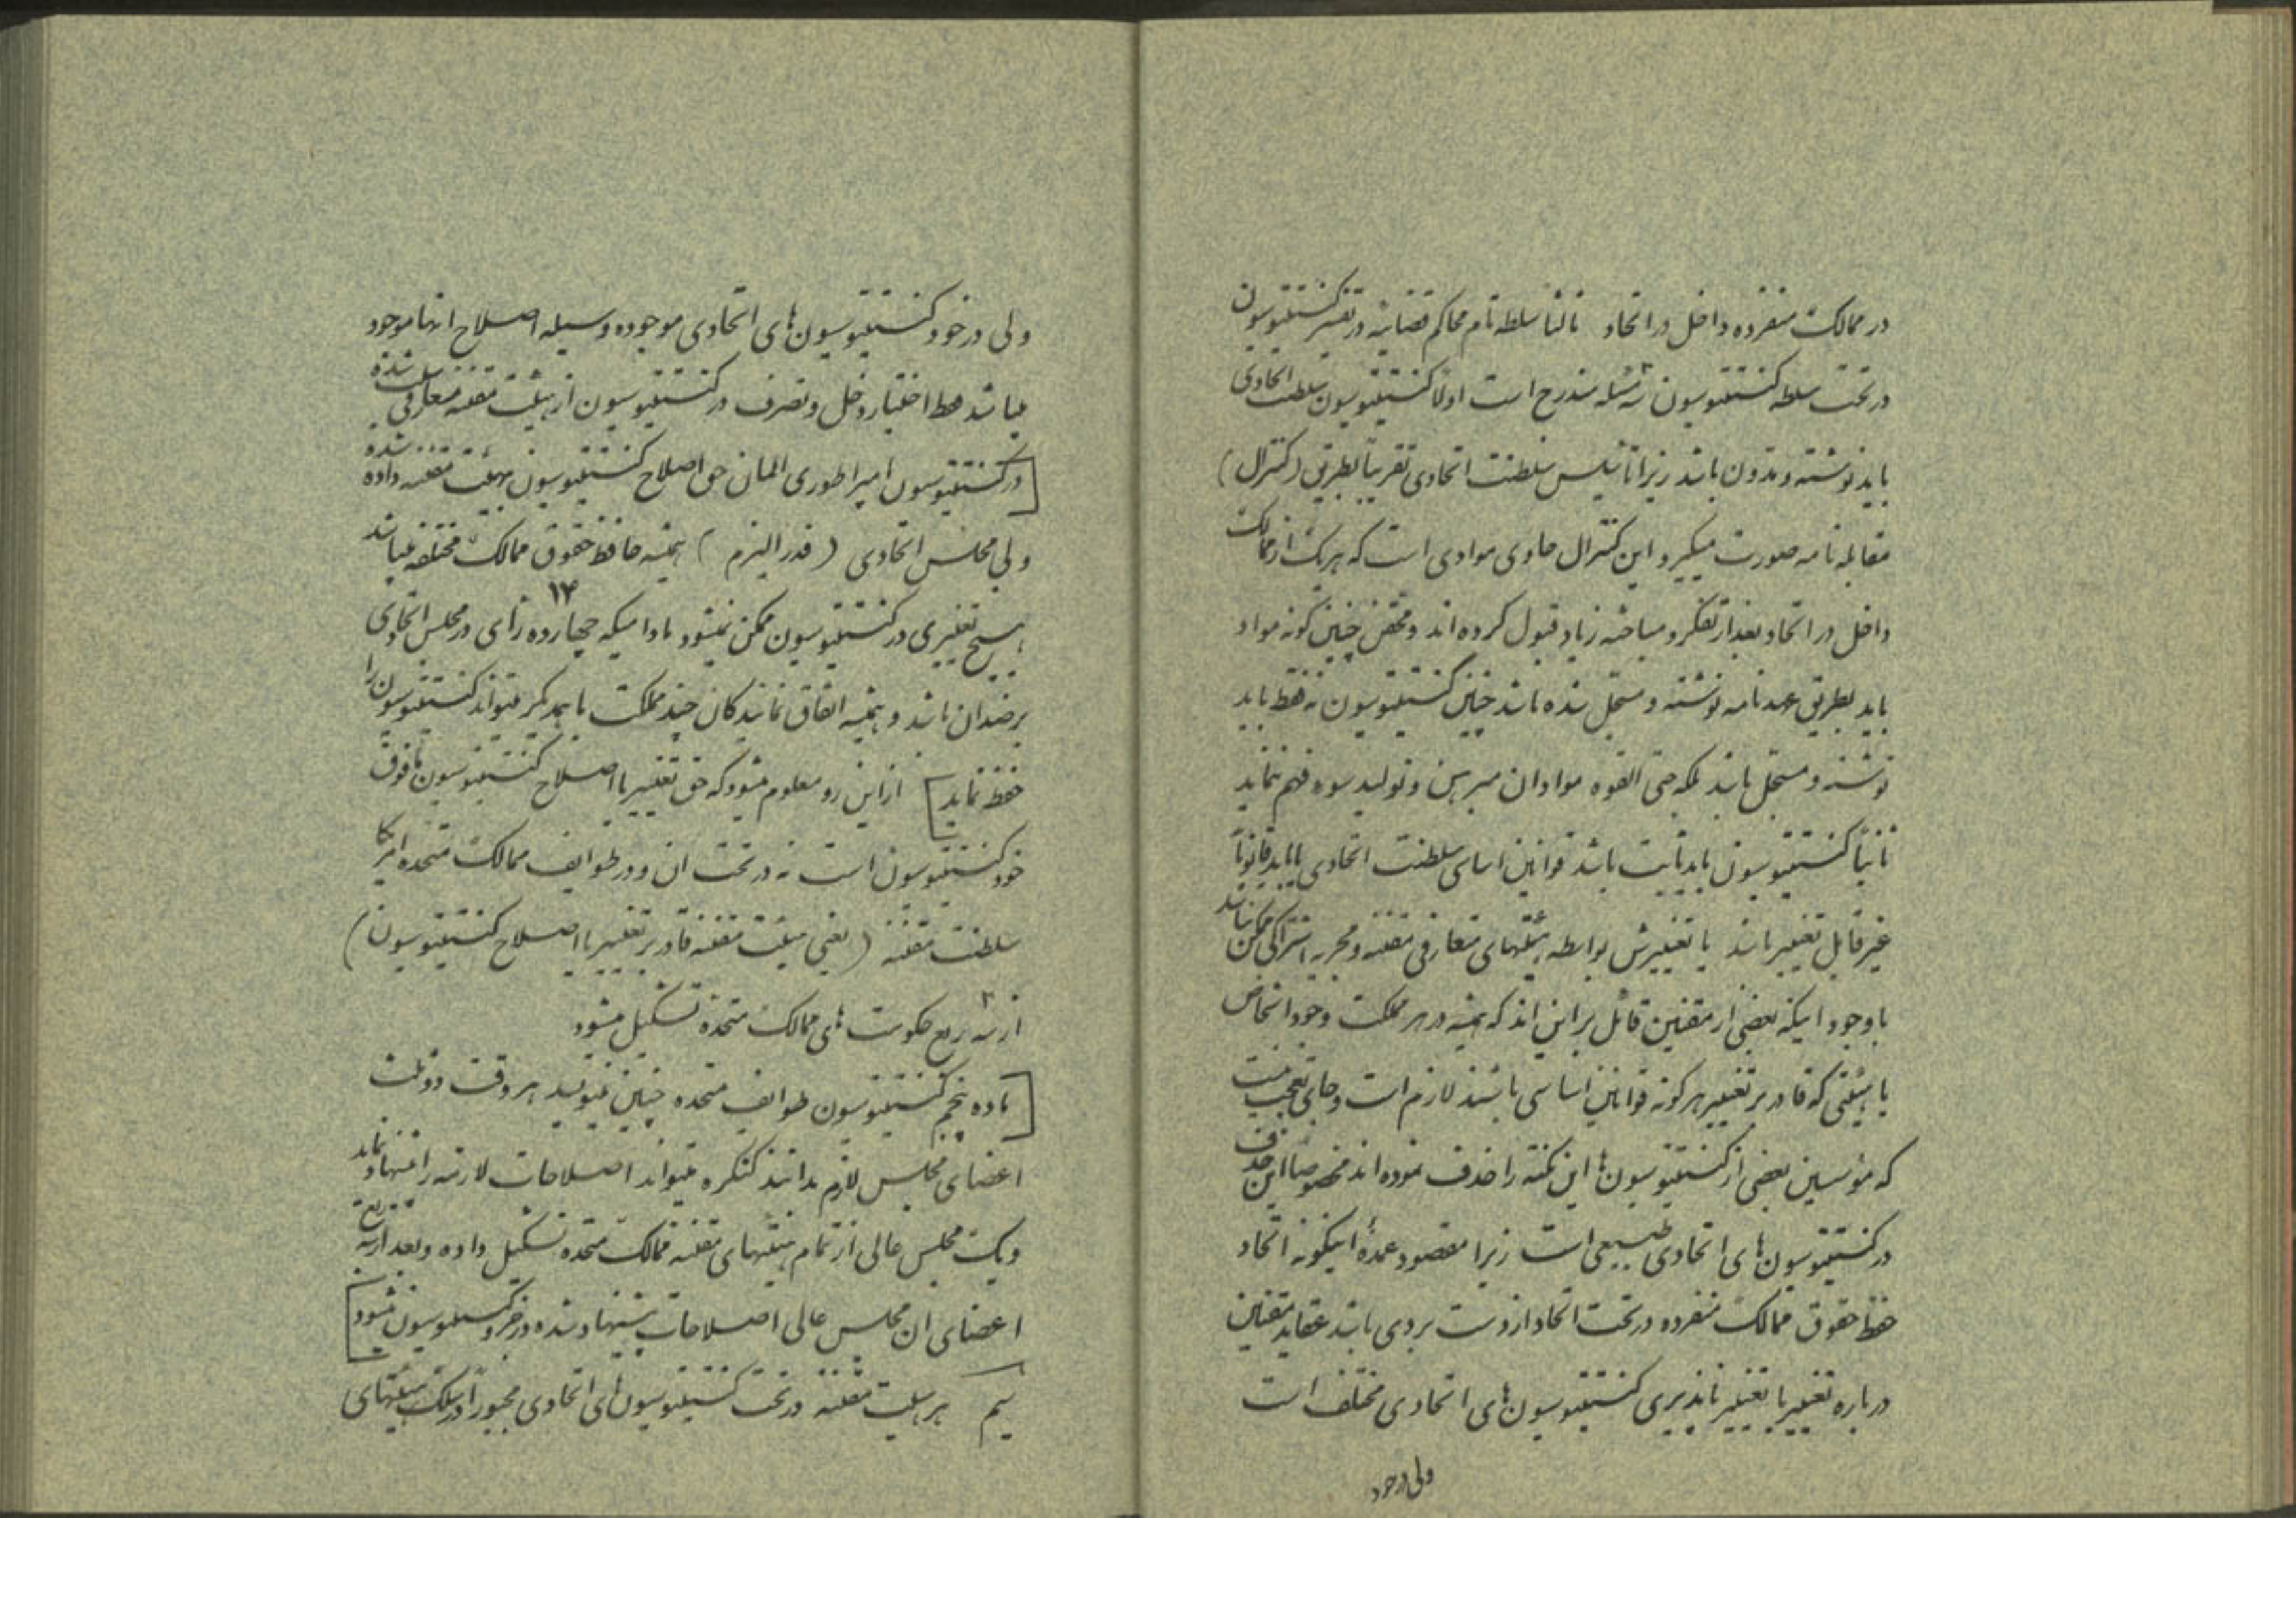 در ممالک منفرده داخل در اتحاد ثالثاً سلطه تام محاکم قضائیه در تفسیر کنستیتوسیون
در تحت سلطه کنستیتوسیون سه ۳ مسئله مندرج است اولاً کنستیتوسیون سلطنت اتحادی
باید نوشته و مدون باشد زیرا تأسیس سلطنت اتحادی تقریباً بطریق (کنترال)
مقاله نامه صورت میگیرد و این کنترال حاوی موادی است که هر یک از ممالک
داخل در اتحاد بعد از تفکر و مباحثه زیاد قبول کرده اند و محض چنین گونه مواد
باید بطریق عهدنامه نوشته و مسجل شده باشد چنین کنستیتوسیون نه فقط باید
نوشته و مسجل باشد بلکه حتی القوه مواد آن مبرهن و تولید سوء فهم ننماید
ثانیاً کنستیتوسیون باید ثابت باشد قوانین اساسی سلطنت اتحادی یا باید قانوناً
غیر قابل تغییر باشد یا تغییرش بواسطه هیئتهای متعارفی مقننه و مجریه اشتراکی ممکن نباشد
با وجود اینکه بعضی از مقننین قائل بر این اند که همیشه در هر مملکت وجود اشخاص
یا هیئتی که قادر بر تغییر هر گونه قوانین اساسی باشند لازم است و جای تعجب نیست
که مؤسسین بعضی از کنستیتوسیون ها این نکته را حذف نموده اند مخصوصاً این حذف
در کنستیتوسیون های اتحادی طبیعی است زیرا مقصود عمدهٔ اینگونه اتحاد
حفظ حقوق ممالک منفرده در تحت اتحاد از دست بردی باشد عقاید مقننین
درباره تغییر یا تغییر ناپذیری کنستیتوسیون های اتحادی مختلف است
ولی در خود
ولی در خود کنستیتوسیون های اتحادی موجوده وسیله اصلاح انها موجود
میباشد فقط اختیار دخل و تصرف در کنستیتوسیون از هیئت مقننه متعارفی سلب شده
[در کنستیتوسیون امپراطوری المان حق اصلاح کنستیتوسیون بهیئت مقننه داده شده
ولی مجلس اتحادی (فدرالیزم) همیشه حافظ حقوق ممالک مختلفه میباشد
هیچ تغییری در کنستیتوسیون ممکن نمیشود مادامیکه چهارده ۱۴ رأی در مجلس اتحادی
بر ضد ان باشد و همیشه اتفاق نمایندگان چند مملکت با همدیگر میتواند کنستیتوسیون را
حفظ نماید] از این رو معلوم میشود که حق تغییر یا اصلاح کنستیتوسیون مافوق
خود کنستیتوسیون است نه در تحت ان و در طوایف ممالک متحده امریکا
سلطنت مقننه (یعنی هیئت مقننه قادر بر تغییر یا اصلاح کنستیتوسیون)
از سه ۳ ربع حکومت های ممالک متحده تشکیل میشود
[ماده پنجم کنستیتوسیون طوایف متحده چنین مینویسد هر وقت دو ثلث
اعضای مجلس لازم بدانند کنگره میتواند اصلاحات لازمه را پیشنهاد نماید
و یک مجلس عالی از تمام هیئتهای مقننه ممالک متحده تشکیل داده و بعد از سه ربع
اعضای ان مجلس عالی اصلاحات پیشنهاد شده در جزو کنستیتوسیون میشود]
سیم هر هیئت مقننه در تحت کنستیتوسیون های اتحادی مجبوراً در سلک هیئتهای